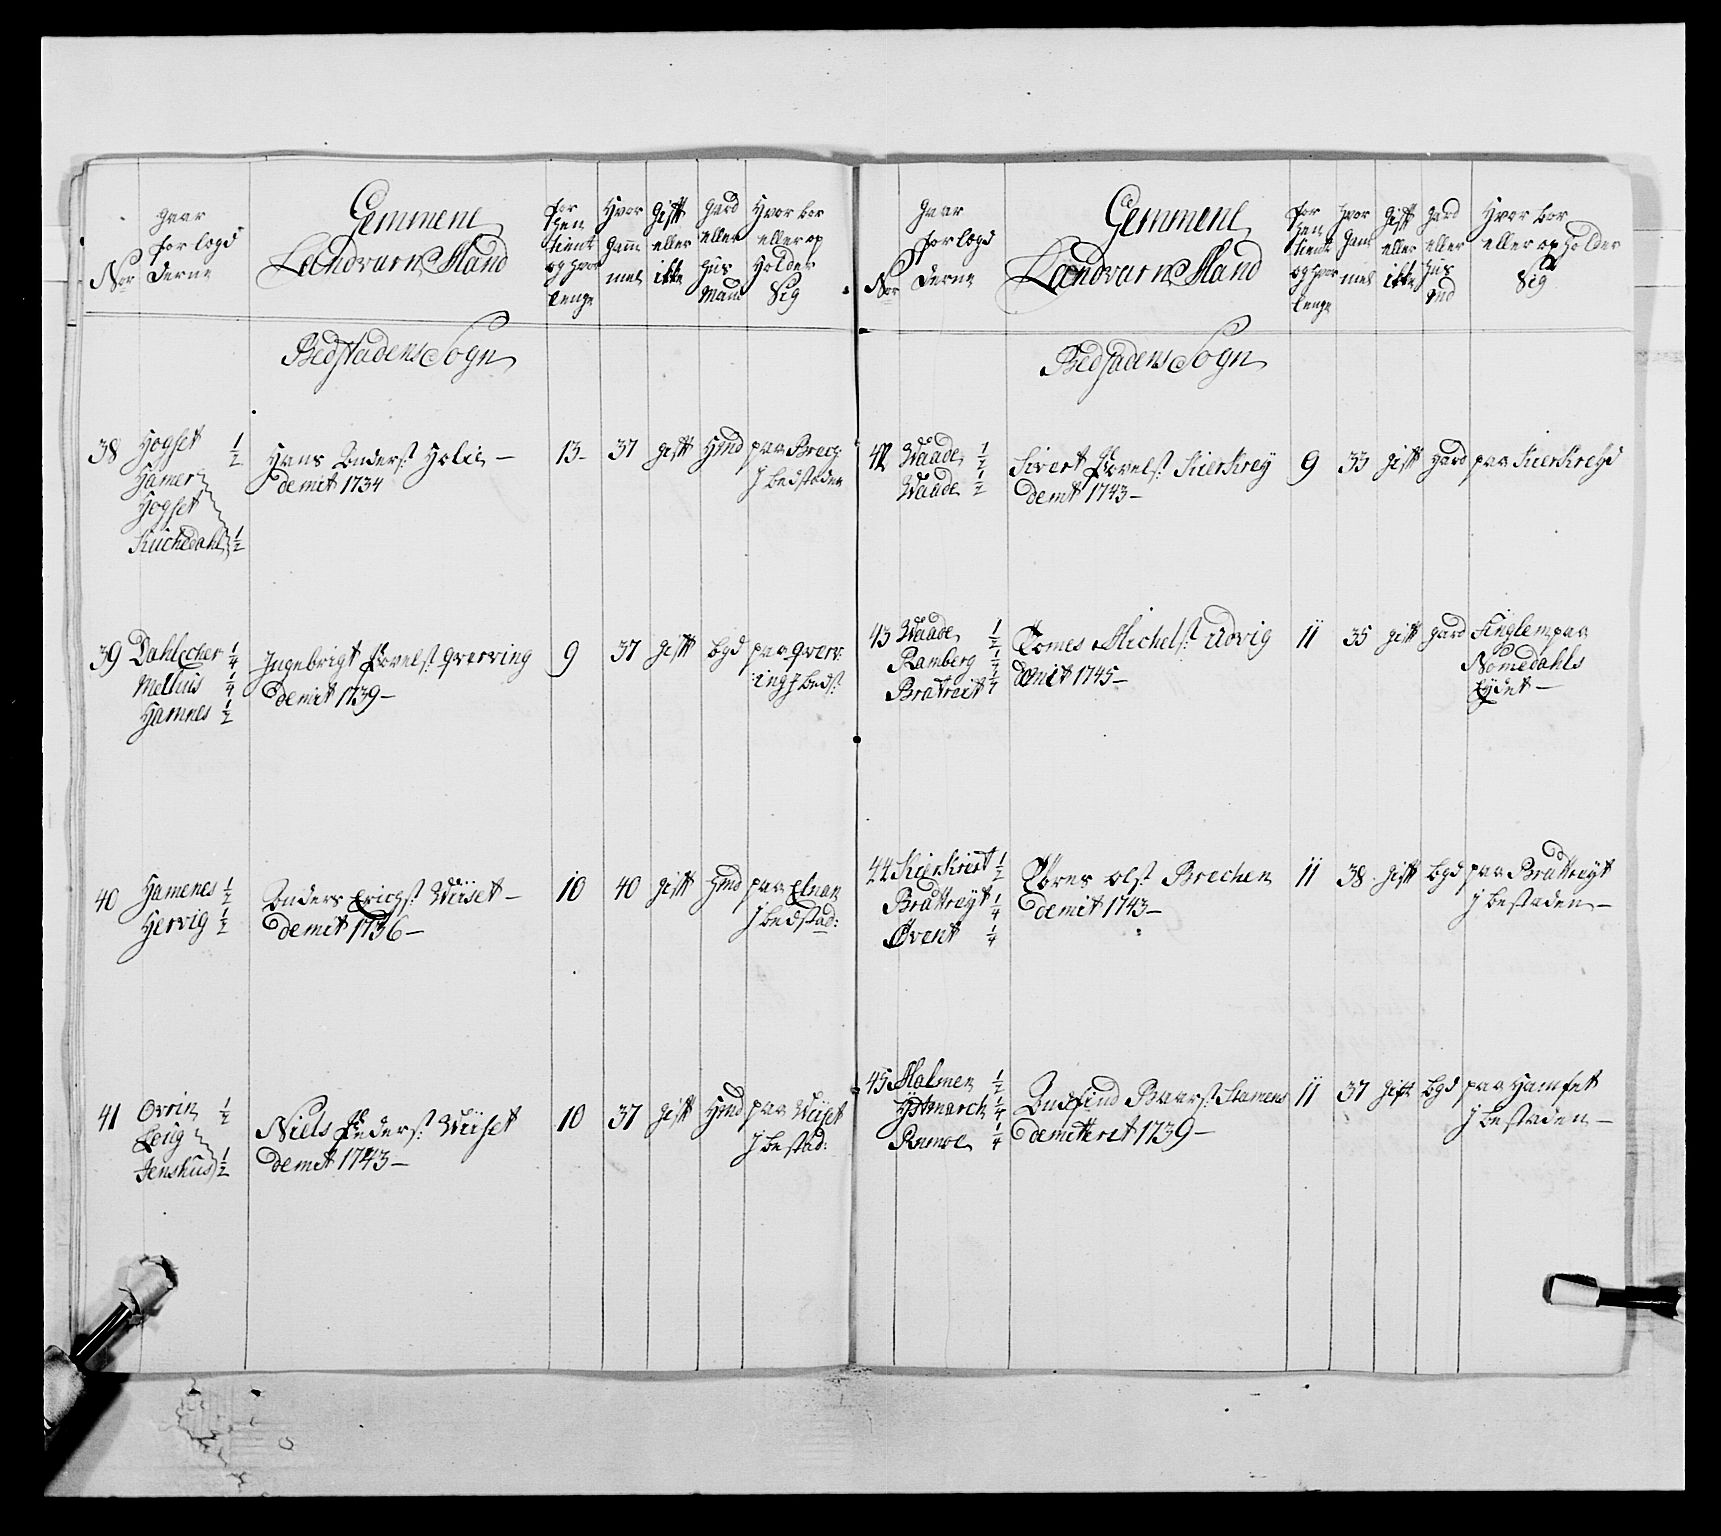 Nor
gaar
forlagd
derne
Gemmene
Landværn Mand
for
hen
tient
og hvor
lenge
Hvor
gam
mel
Gift
eller
ikke
gard
eller
Hus
Mand
Hvor bor
eller op
Holder
Sig
Bedstadens Sogn
38 Hogset 1/2
Hamer
Hogset
Kirchedahl 1/2
Hans Anders: Holie —
demit 1734
13- 37 gift Hmd paa
J bedstaden
39 Dahlecher 1/4
Melhus 1/4
Hamnes 1/2
Ingebrigt Povels: Qverving
demit 1739 —
9 37 gift bgd paa Qverv:
ing J beds:
40 Hamenes 1/2
Hervig 1/2
Anders Erichs: Wiiset —
demit 1736 —
10 40 gift Hmd paa Elnan
J bedstad:
41 Ovrin 1/2
Leiig
Jenshus 1/2
Niels Peders: Wiiset
demit 1743 —
10 37 gift Hmd paa Wiiset
J bestad:
Nor
gaar
forlagd
derne
Gemmene
Landværn Mand
for
hen
tient
og hvor
lenge
Hvor
gam
mel
Gift
eller
ikke
gard
eller
Hus
md
Hvor bor
eller op Holder
Sig
Bedsadens Sogn
42 Waade 1/2
Waade 1/2
Sivert Povels: Kierkrey
demit 1743 —
9 33 gift gard paa Kierkreyd
43 Waade 1/2
Ramberg 1/4
Bratreit 1/4
Tomes Michels: Udvig
demit 1745 —
11 35 gift gard Finglem paa
Nomedahls
Eydet —
44 Kierkreit 1/2
Brattreyt 1/4
Øvent 1/4
Tores Ols: Brechen
demit 1743 —
11 38 gift bgd paa Brattreyt
J bestaden —
45 Malmen 1/2
Hstmarch 1/4
Rumoe 1/4
Audfind Baars: Stamens
demitteret 1739 —
11 37 gift bgd paa Hamset
J bestaden —